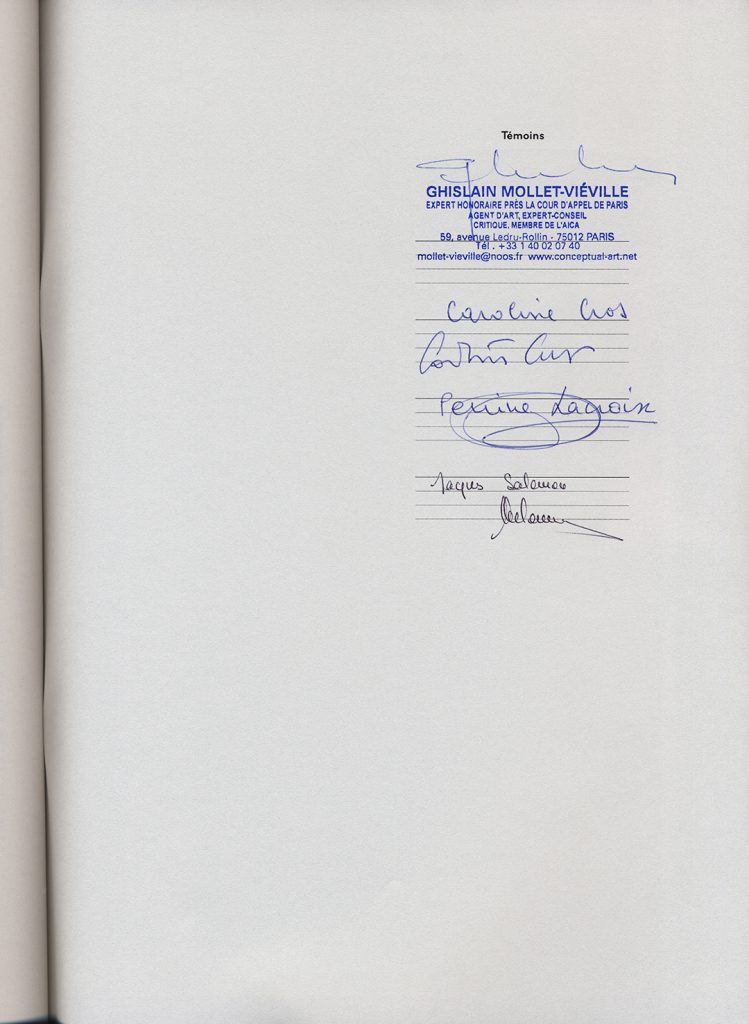 Témoins
GHISLAIN MOLLET-VIÉVILLE
EXPERT HONORAIRE PRÈS LA COUR D'APPEL DE PARIS
AGENT D'ART, EXPERT-CONSEIL
CRITIQUE, MEMBRE DE L'AICA
59, avenue Ledru-Rollin - 75012 PARIS
Tél . +33 1 40 02 07 40
mollet-vieville@noos.fr www.conceptual-art.net
Caroline Cros
Perrine Lacroix
Jacques Salomon